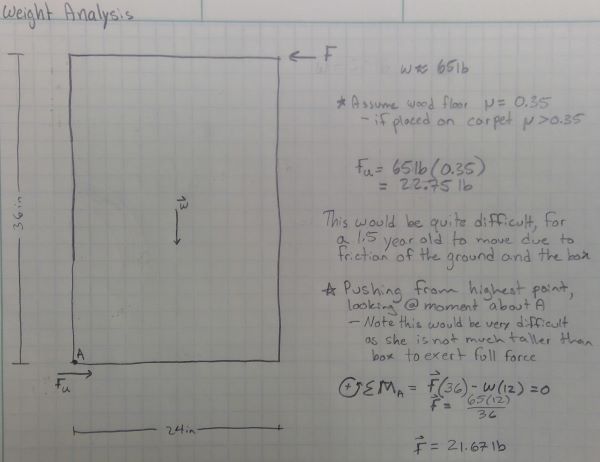 Weight Analysis
F
w ≈ 65lb
* Assume wood floor μ = 0.35
- if placed on carpet μ > 0.35
36in
w
Fu = 65lb(0.35)
= 22.75 lb
This would be quite difficult, for
a 1.5 year old to move due to
friction of the ground and the box
* Pushing from highest point,
looking @ moment about A
- Note this would be very difficult
as she is not much taller than
box to exert full force
A
Fu
+ ΣMA = F(36) - W(12) = 0
F = 65(12)
36
24in
F = 21.67 lb